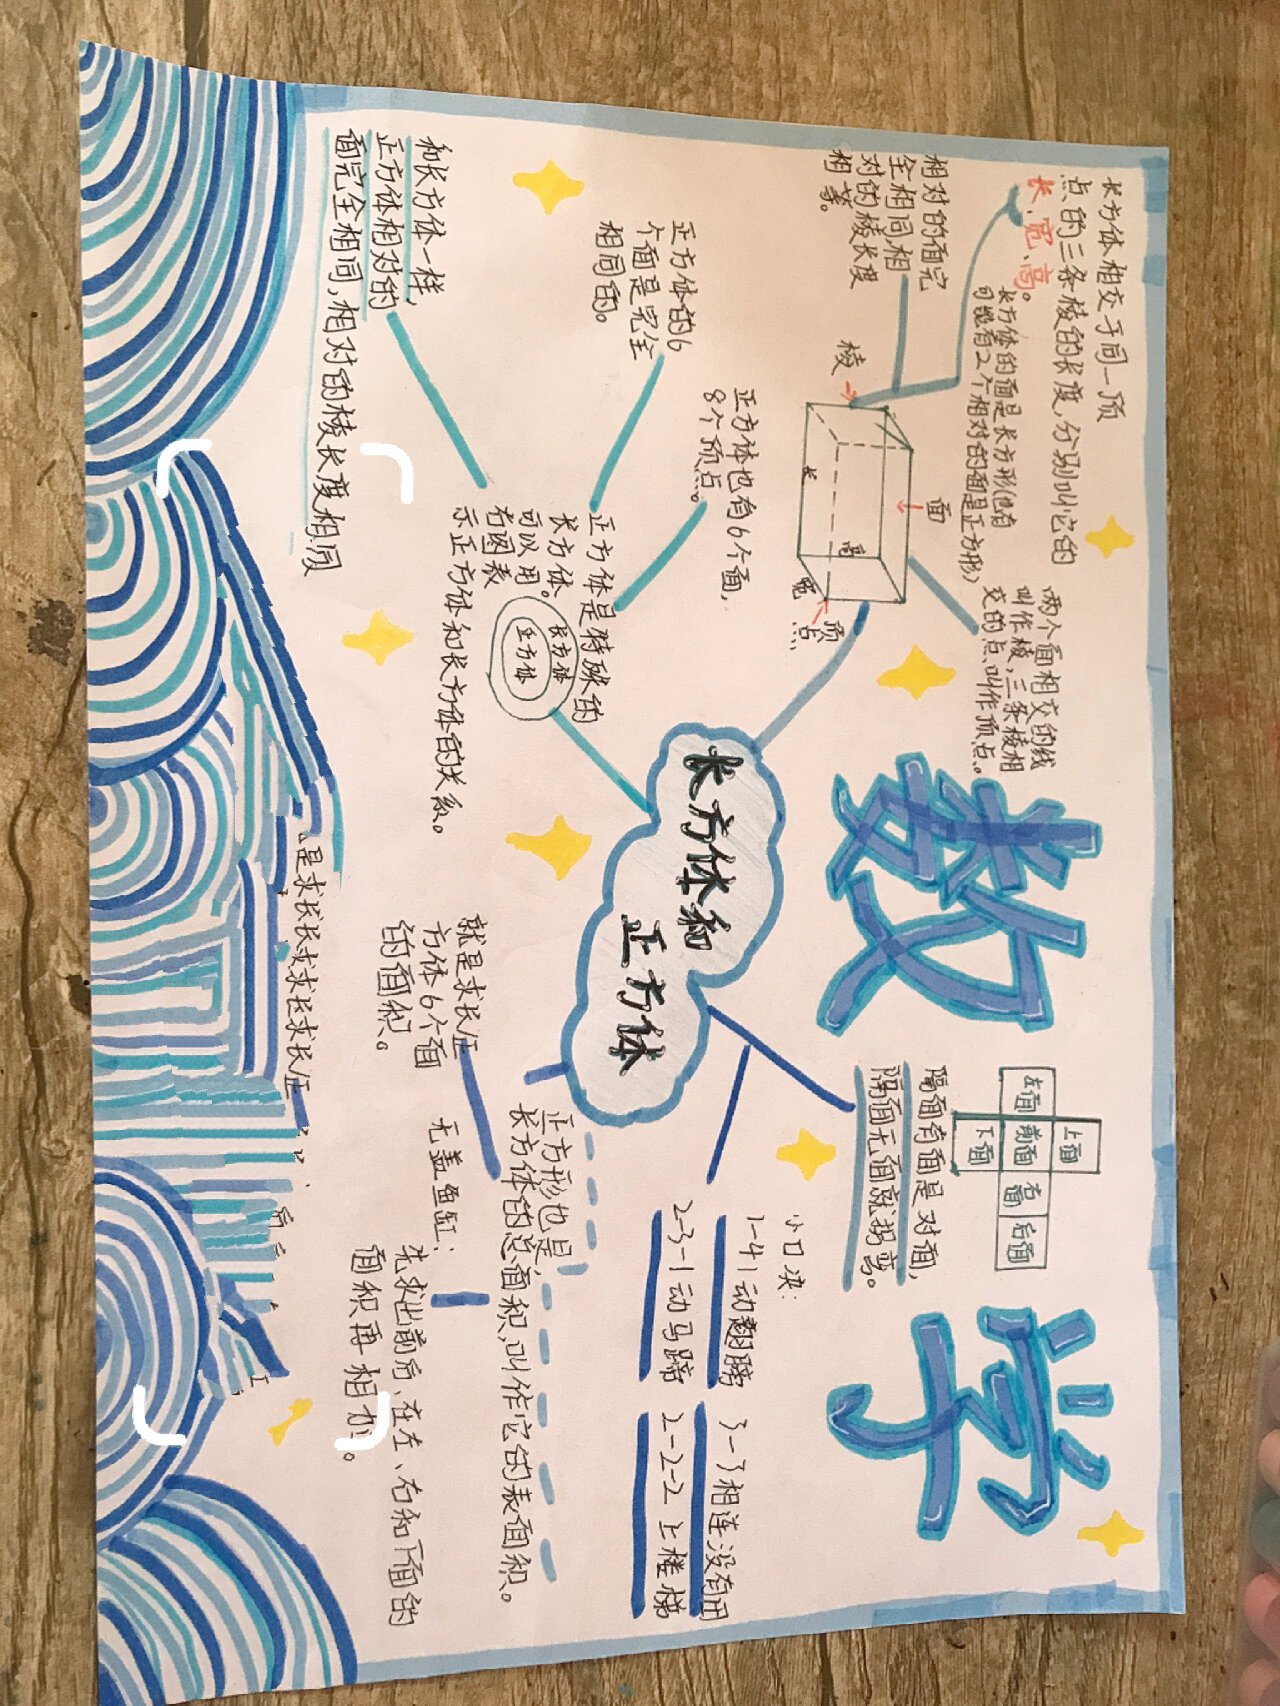 数学
长方体和
正方体
长方体相交于同一顶
点的三条棱的长度,分别叫它的
长、宽、高。
长方体的面是长方形(也有
可能有2个相对的面是正方形)
相对的面完
全相同,相
对的棱长度
相等。
棱
面
长
高
宽
顶
点
两个面相交的线
叫作棱,三条棱相
交的点叫作顶点。
正方体也有6个面,
8个顶点。
正方体的6
个面是完全
相同的。
和长方体一样,
正方体相对的
面完全相同,相对的棱长度相同
正方体是特殊的
长方体。
可以用
右图表
示正方体和长方体的关系。
长方体
正方体
上面
左面
前面
右面
后面
下面
隔面有面是对面,
隔面无面就拐弯。
小口决:
1-41动翻腾
3-3相连没有用
2-3-1动马蹄
2-2-2上楼梯
正方形也是,
长方体的总面积,叫作它的表面积。
就是求长/正
方体6个面
的面积。
无盖鱼缸:
先求出前后、在左、右和下面的
面积再相加。
是求长长求求长求长/正